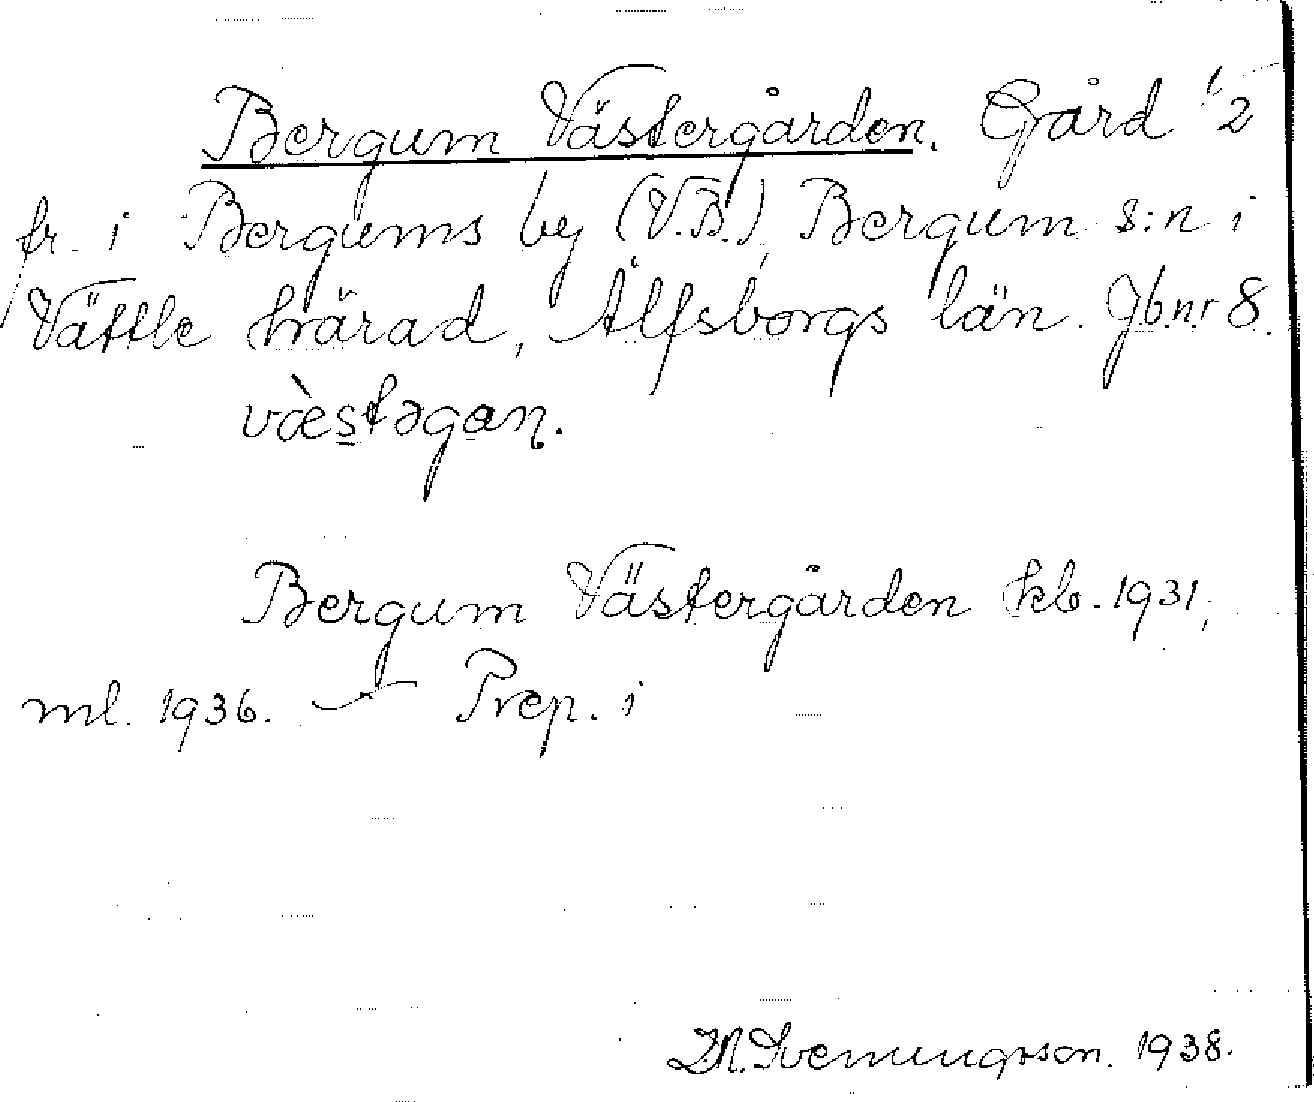 Bergum Västergården. Gård 1/2
fr. i Bergums by (V.B.), Bergum s:n i
Vättle härad, Älfsborgs län. Jbnr 8.
væ̀stəgaɳ.
Bergum Västergården kb. 1931,
ml. 1936. — Prep. i
1938.